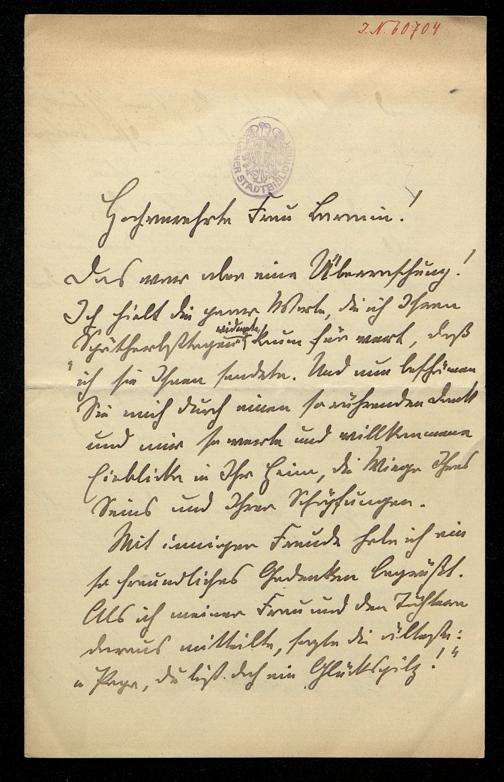 I.N. 60704
WIENER STADTBIBLIOTHEK
Hochverehrte Frau Baronin!
Das war aber eine Überraschung!
Ich hielt die paar Worte, die ich Ihren
"Spätherbsttagen" widmete, kaum für wert, daß
ich sie Ihnen sendete. Und nun beschämen
Sie mich durch einen so rührenden Dank
und mir so werte und willkommene
Einblicke in Ihr Heim, die Wiege Ihres
Seins und Ihrer Schöpfungen.
Mit inniger Freude habe ich ein
so freundliches Gedenken begrüßt.
Als ich meiner Frau und den Töchtern
daraus mitteilte, sagte die älteste:
"Papa, du bist doch ein Glückspilz!"